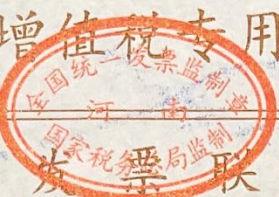 增值税专用
全国统一发票监制章
河南
国家税务总局监制
发票联